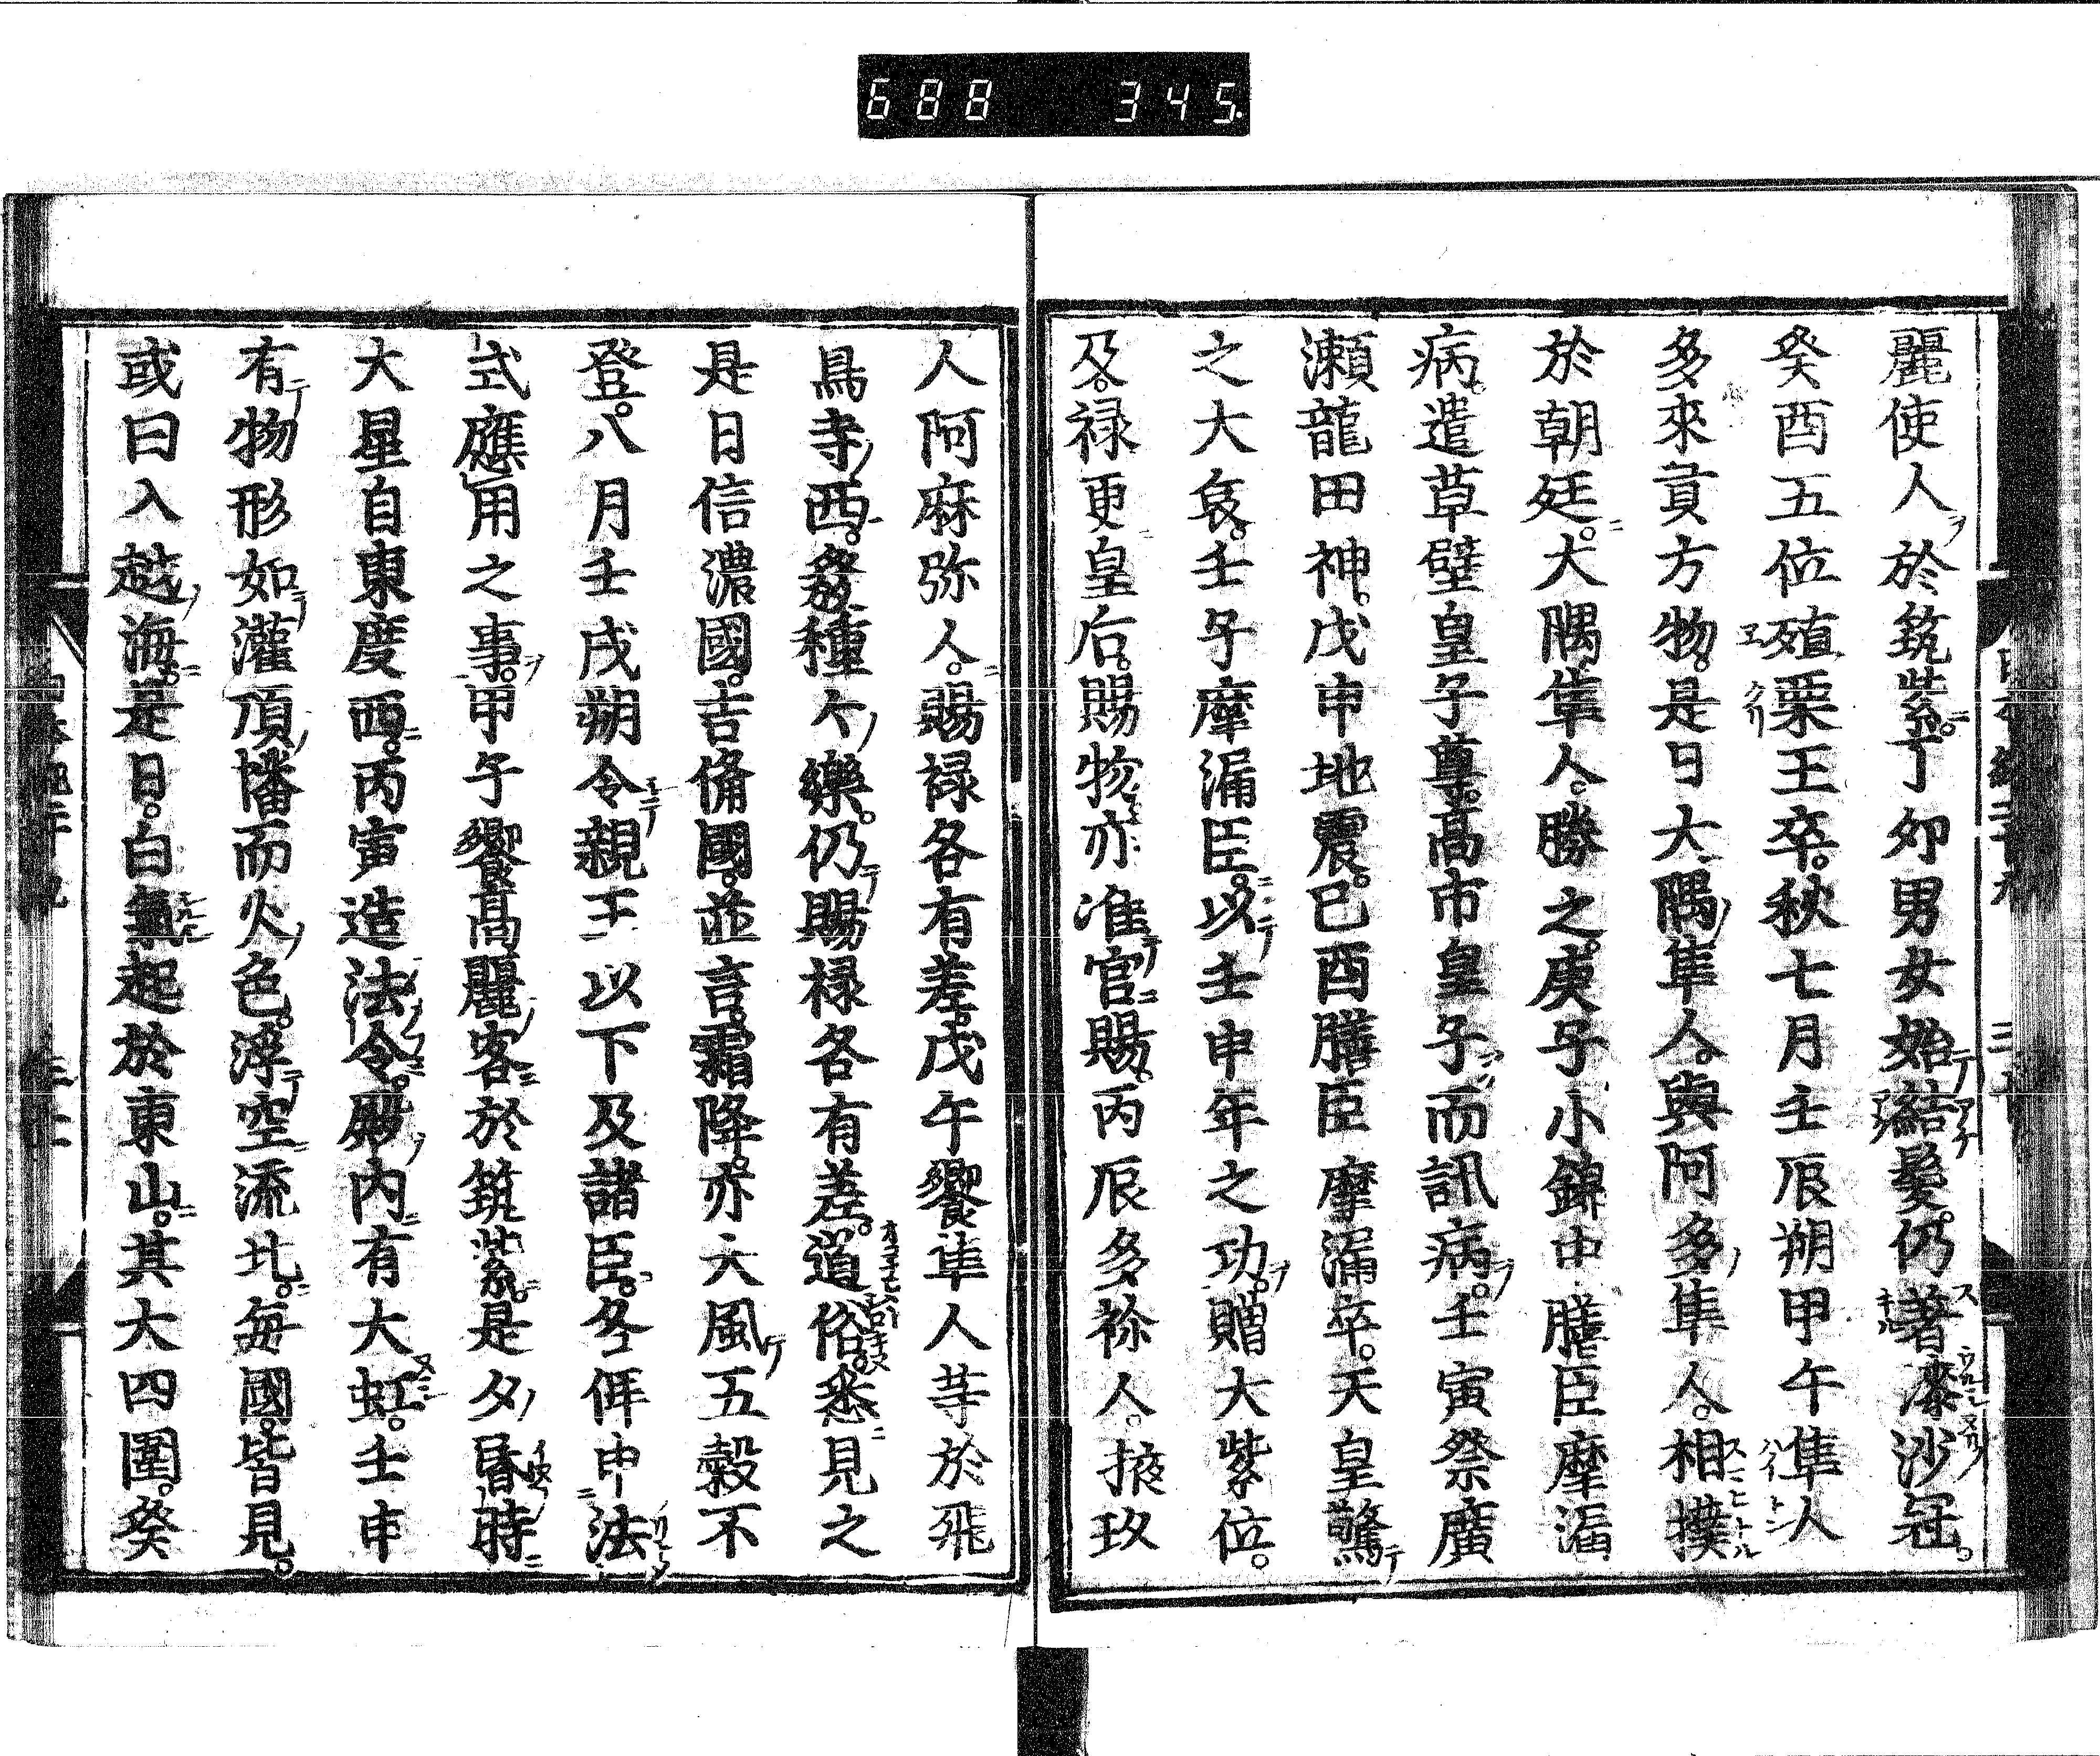 688 345
麗使人於筑紫。丁卯男女始結髮。仍著漆沙冠。
癸酉五位殖栗王卒。秋七月壬辰朔甲午隼人
多來貢方物。是日大隅隼人。與阿多隼人。相撲
於朝廷。大隅隼人。勝之。庚子小錦中膳臣摩漏
病。遣草壁皇子尊。髙市皇子而訊病。壬寅祭廣
瀬龍田神。戊申地震。巳酉膳臣摩漏卒。天皇驚
之大哀。壬子摩漏臣。以壬申年之功。贈大紫位。
及。禄更皇后。賜物亦准官賜。丙辰多祢人。掖玖
人阿麻弥人。賜禄各有差。戊午饗隼人等於飛
鳥寺西。發種々樂。仍賜禄各有差。道俗。悉見之
是日信濃國。吉備國。並言。霜降。亦大風五穀不
登。八月壬戌朔令親王以下及諸臣。各俾申法
式應用之事。甲子饗髙麗客於筑紫。是夕昏時
大星自東度西。丙寅造法令。殿内有大虹。壬申
有物形如灌頂幡而火色。浮空流北。毎國。皆見。
或曰入越海。是日。白氣起於東山。其大四圍。癸